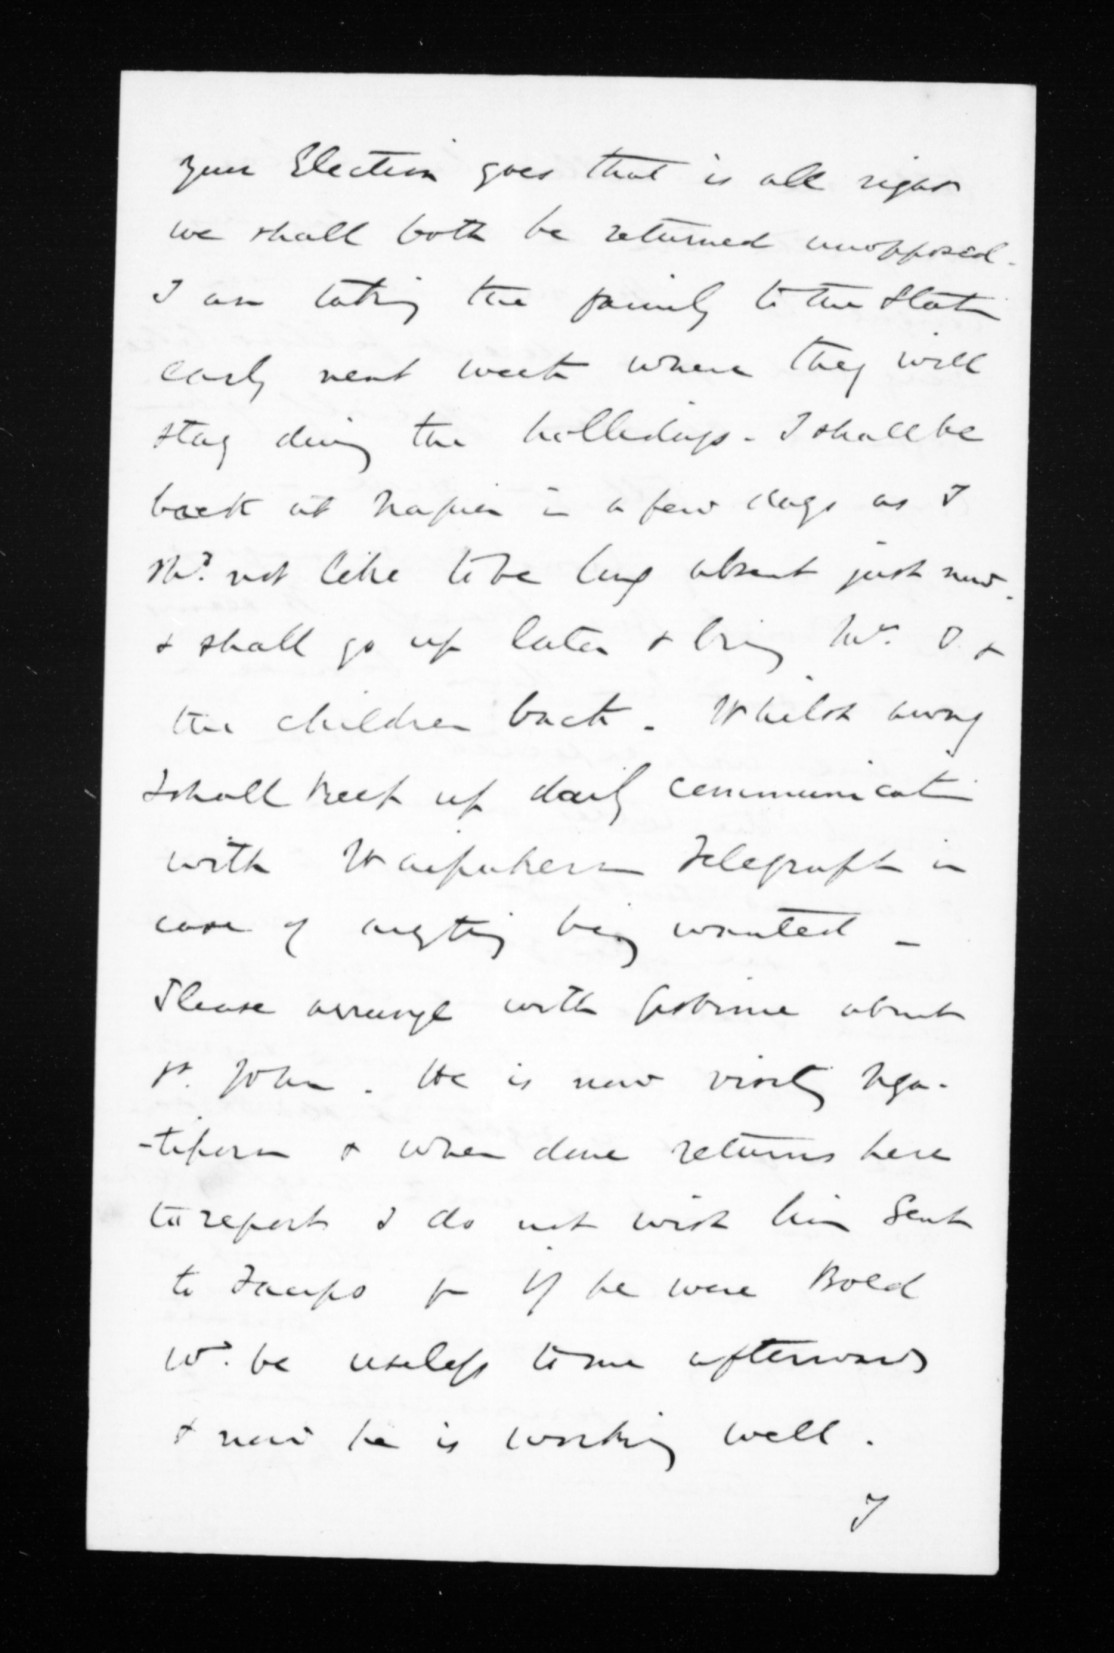 your Election goes that is all right
we shall both be returned unopposed.
I am taking the family to the Station
early next week where they will
stay during the hollidays - I shall be
back at Napier in a few days as I
shd. not like to be long absent just now.
& shall go up later & bring Mrs. O. &
the children back. Whilst away
I shall keep up daily communication
with Waipukurau Telegraph in
case of anything being wanted -
Please arrange with Gisborne about
St. John. He is now visiting Nga-
-tiporou & when done returns here
to report I do not wish him Sent
to Taupo for if he were Bold
wd. be useless to me afterwards
& now he is working well.
I